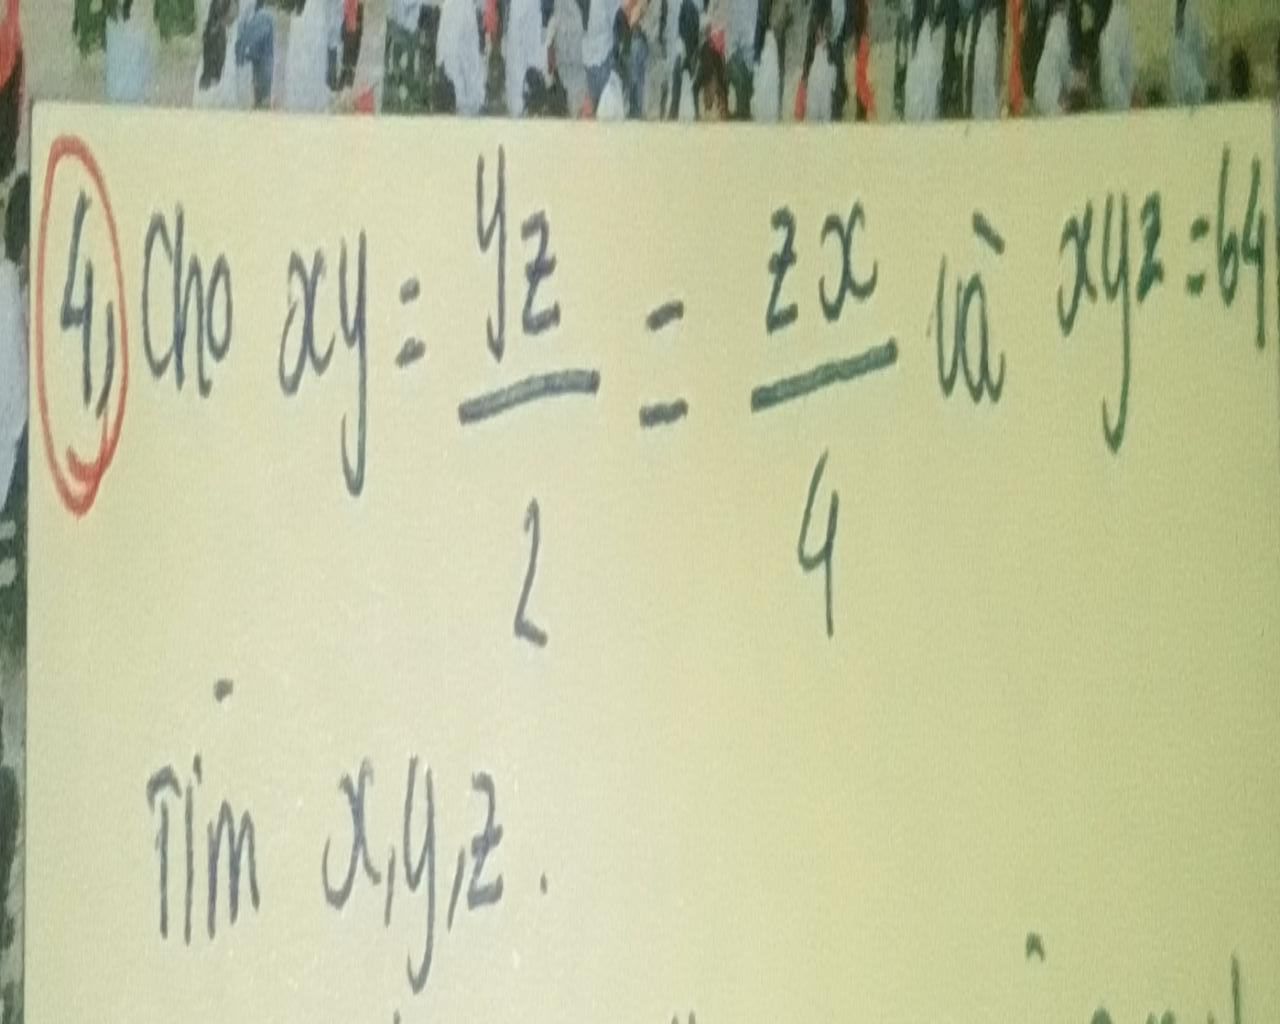 4, Cho xy = yz/2 = zx/4 và xyz = 64
Tìm x, y, z.